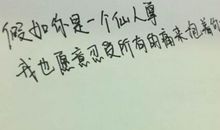 假如你是一个仙人掌
我也愿意忍受所有的痛来抱着你